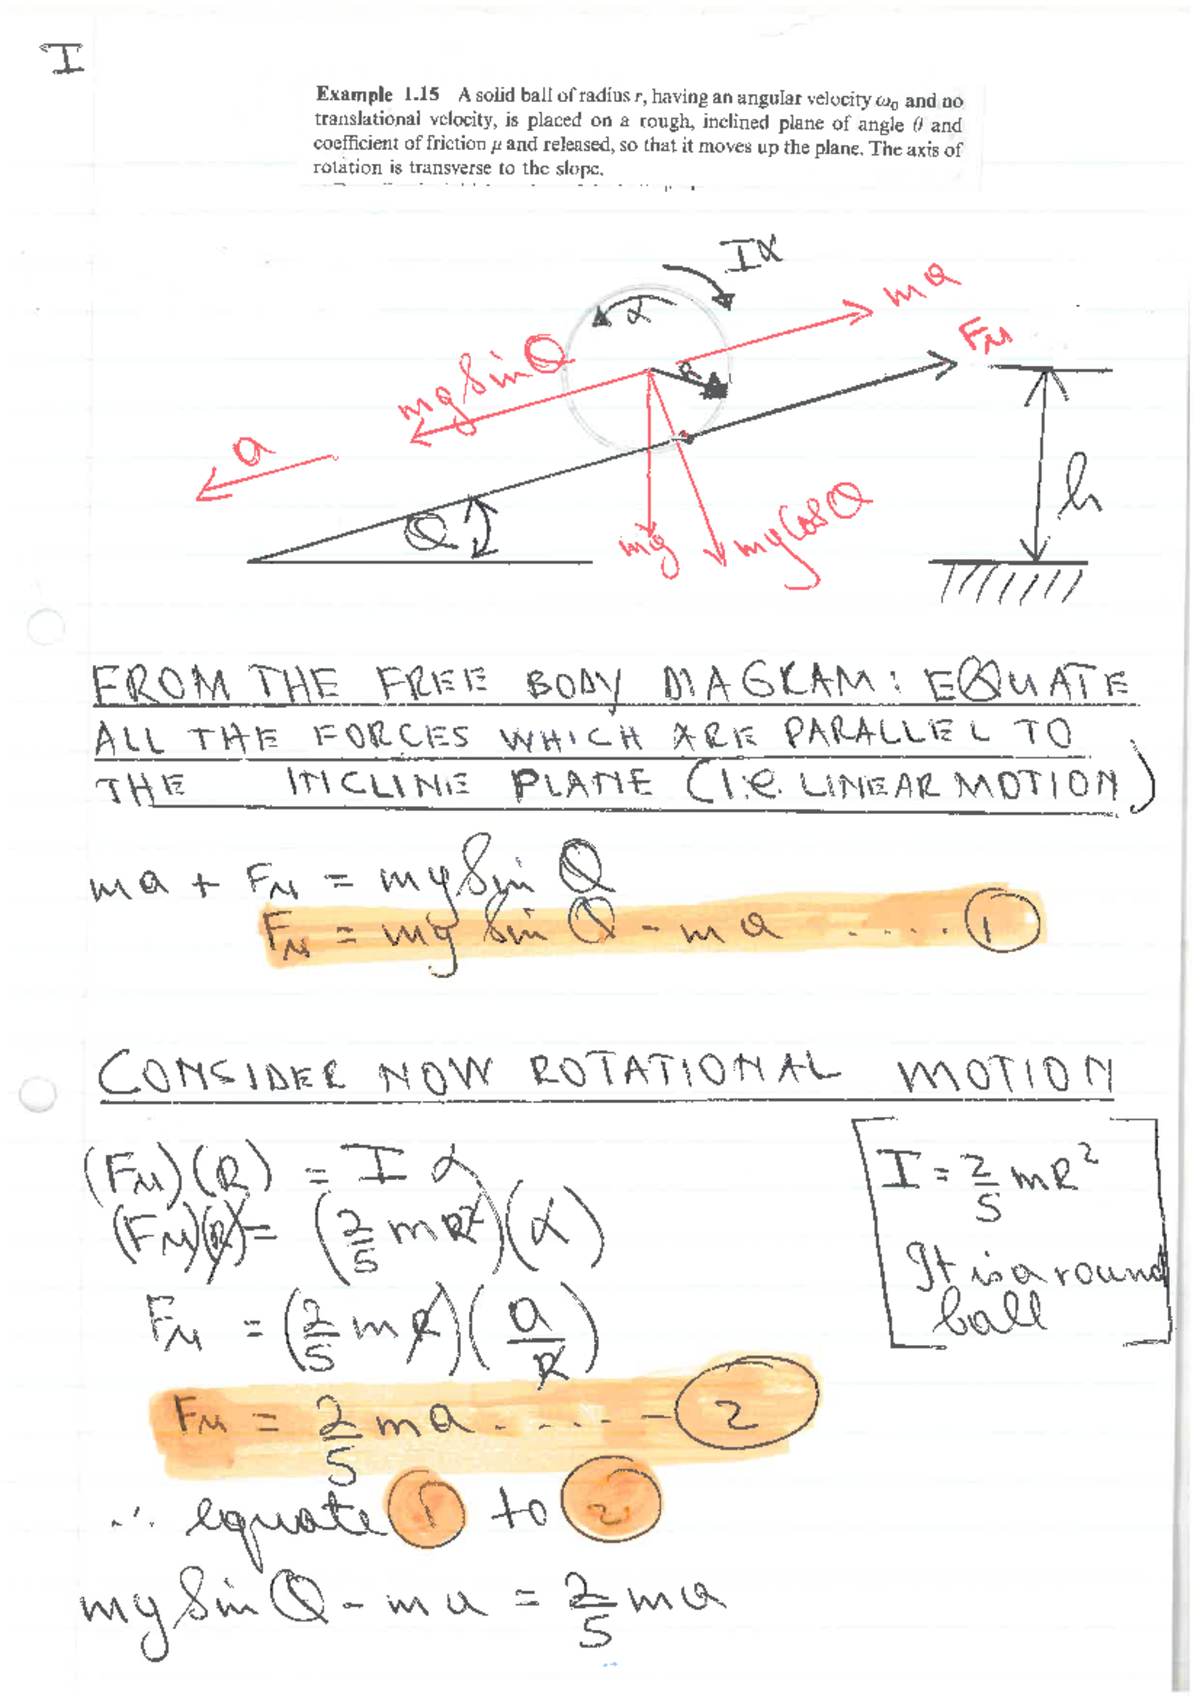 I
Example 1.15 A solid ball of radius r, having an angular velocity ω₀ and no
translational velocity, is placed on a rough, inclined plane of angle θ and
coefficient of friction μ and released, so that it moves up the plane. The axis of
rotation is transverse to the slope.
Iα
α
ma
Fμ
R
mg Sin θ
a
θ
mg
mg Cos θ
h
FROM THE FREE BODY DIAGRAM: EQUATE
ALL THE FORCES WHICH ARE PARALLEL TO
THE INCLINE PLANE (I.e. LINEAR MOTION)
ma + Fμ = mg Sin θ
Fμ = mg Sin θ - ma ..... 1
CONSIDER NOW ROTATIONAL MOTION
(Fμ)(R) = I α
(Fμ)(R) = (2/5 mR²)(α)
Fμ = (2/5 mR)(a/R)
Fμ = 2/5 ma ..... 2
I = 2/5 mR²
It is a round
ball
∴ equate 1 to 2
mg Sin θ - ma = 2/5 ma